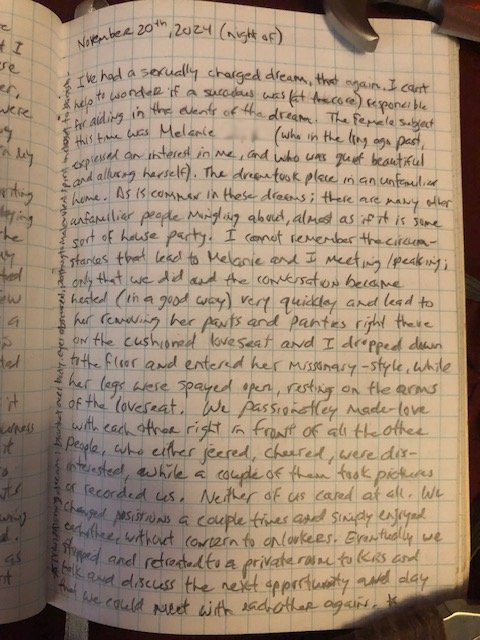 November 20th, 2024 (night of)
I've had a sexually charged dream, that again. I can't
help to wonder if a succubus was (at the core) responsible
for aiding in the events of the dream. The female subject
this time was Melanie (who in the long ago past,
expressed an interest in me, and who was quet beautiful
and alluring herself). The dream took place in an unfamiliar
home. As is common in these dreams; there are many other
unfamiliar people mingling about, almost as if it is some
sort of house party. I cannot remember the circum-
stances that lead to Melanie and I meeting/speaking;
only that we did and the conversation became
heated (in a good way) very quickley and lead to
her removing her pants and panties right there
on the cushioned loveseat and I dropped down
to the floor and entered her missonary-style, while
her legs were spayed open, resting on the arms
of the loveseat. We passionatley made-love
with each other right in front of all the other
people, who either jeered, cheered, were dis-
interested, while a couple of them took pictures
or recorded us. Neither of us cared at all. We
changed posistions a couple times and simply enjoyed
eachother, without concern to onlookers. Eventually we
stopped and retreated to a private room to kiss and
talk and discuss the next opportunity and day
that we could meet with eachother again. *